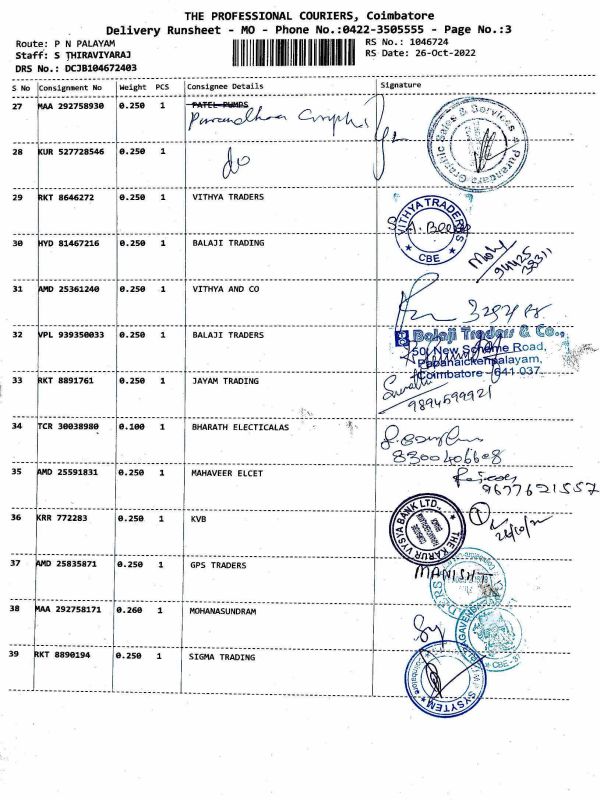 THE PROFESSIONAL COURIERS, Coimbatore
Delivery Runsheet - MO - Phone No.:0422-3505555 - Page No.:3
Route: P N PALAYAM
RS No.: 1046724
Staff: S THIRAVIYARAJ
RS Date: 26-Oct-2022
DRS No.: DCJB104672403
S No Consignment No Weight PCS Consignee Details Signature
27 MAA 292758930 0.250 1 PATEL PUMPS
28 KUR 527728546 0.250 1 do
29 RKT 8646272 0.250 1 VITHYA TRADERS
VITHYA TRADERS
CBE
30 HYD 81467216 0.250 1 BALAJI TRADING
94425
38311
31 AMD 25361240 0.250 1 VITHYA AND CO
32 VPL 939350033 0.250 1 BALAJI TRADERS
Balaji Traders & Co.,
50, New Scheme Road,
Papanaickenpalayam,
Coimbatore - 641 037.
33 RKT 8891761 0.250 1 JAYAM TRADING
9894599921
34 TCR 30038980 0.100 1 BHARATH ELECTICALAS
8300406608
35 AMD 25591831 0.250 1 MAHAVEER ELCET
9677621557
36 KRR 772283 0.250 1 KVB
THE KARUR VYSYA BANK LTD.,
37 AMD 25835871 0.250 1 GPS TRADERS
MANISH
38 MAA 292758171 0.260 1 MOHANASUNDRAM
39 RKT 8890194 0.250 1 SIGMA TRADING